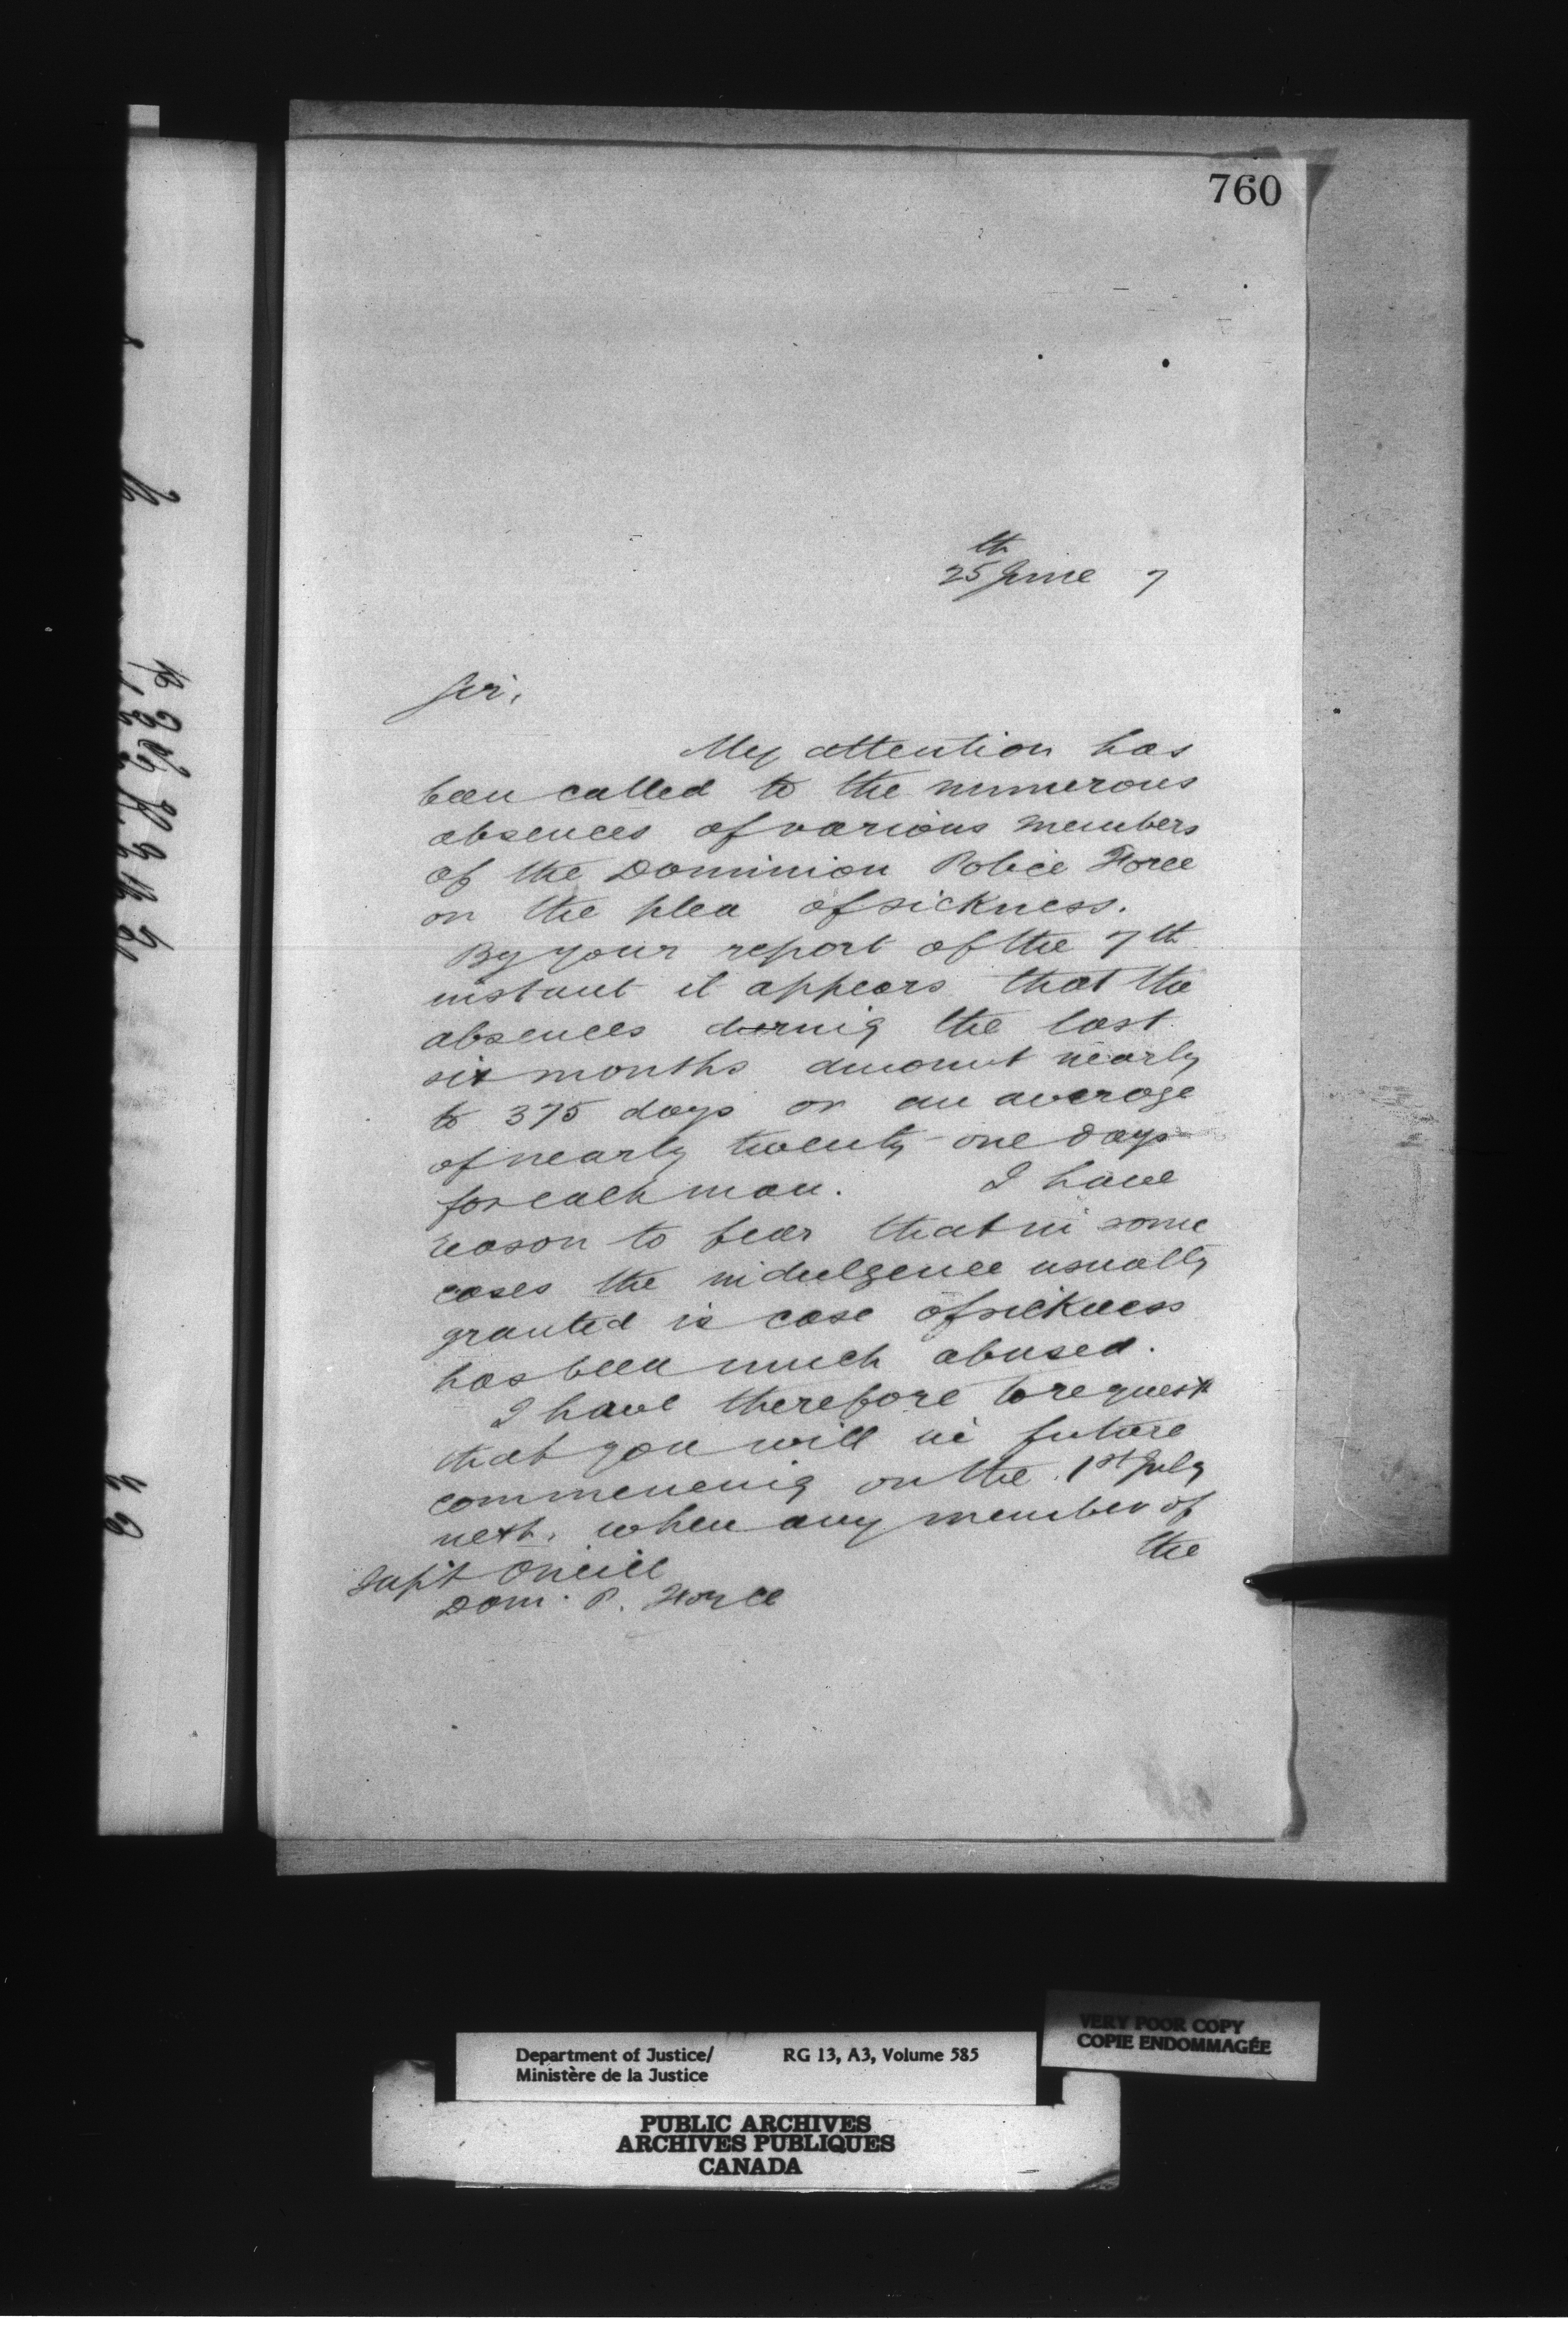 760
25th June 7
Sir,
My attention has
been called to the numerous
absences of various members
of the Dominion Police Force
on the plea of sickness.
By your report of the 7th
instant it appears that the
absences during the last
six months amount nearly
to 375 days or an average
of nearly twenty-one days
for each man. I have
reason to fear that in some
cases the indulgence usually
granted in case of sickness
has been much abused.
I have therefore to request
that you will in future
commencing on the 1st July
next, when any member of
the
Supt. O'Neill
Dom. P. Force
VERY POOR COPY
COPIE ENDOMMAGÉE
Department of Justice/ RG 13, A3, Volume 585
Ministère de la Justice
PUBLIC ARCHIVES
ARCHIVES PUBLIQUES
CANADA